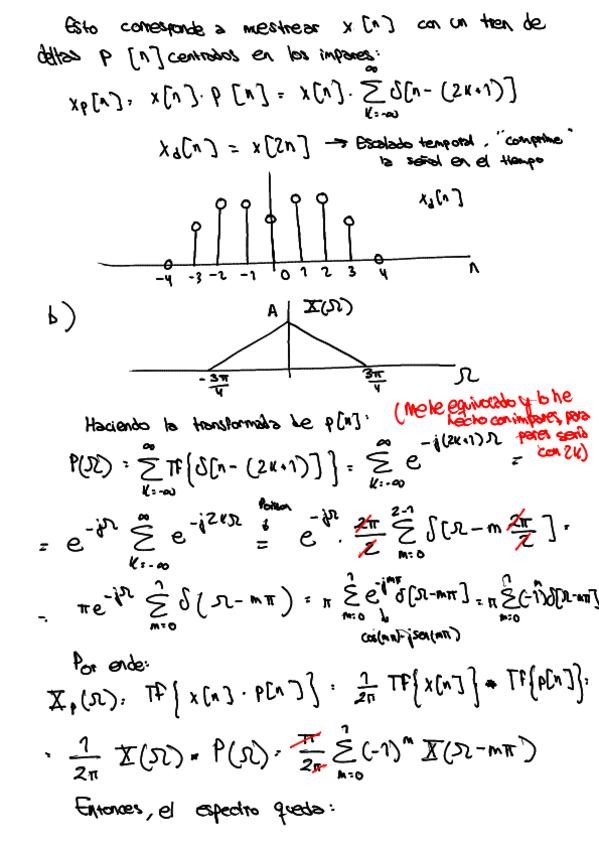 Esto corresponde a mestrear x[n] con un tren de
deltas p[n] centrados en los impares:
xₚ[n] = x[n] · p[n] = x[n] · ∑_{k=-∞}^{∞} δ[n - (2k+1)]
x_d[n] = x[2n] → Escalado temporal, "comprime"
la señal en el tiempo
x_d[n]
-4 -3 -2 -1 0 1 2 3 4 n
b)
A X(Ω)
-3π/4 3π/4 Ω
Haciendo la transformada de p[n]: (Me he equivocado y lo he
hecho con impares, para
pares sería
con 2k)
P(Ω) = ∑_{k=-∞}^{∞} TF{δ[n - (2k+1)]} = ∑_{k=-∞}^{∞} e^{-j(2k+1)Ω} =
= e^{-jΩ} ∑_{k=-∞}^{∞} e^{-j2kΩ} = (Poisson ↓) e^{-jΩ} · 2π/2 ∑_{m=0}^{2-1} δ[Ω - m 2π/2] =
= πe^{-jΩ} ∑_{m=0}^{1} δ(Ω - mπ) = π ∑_{m=0}^{1} e^{-jmπ} δ[Ω-mπ] = π ∑_{m=0}^{1} (-1)^m δ[Ω-mπ]
cos(mπ)-jsen(mπ)
Por ende:
Xₚ(Ω) = TF{x[n] · p[n]} = 1/2π TF{x[n]} * TF{p[n]} =
= 1/2π X(Ω) * P(Ω) = π/2π ∑_{m=0}^{1} (-1)^m X(Ω-mπ)
Entonces, el espectro queda: